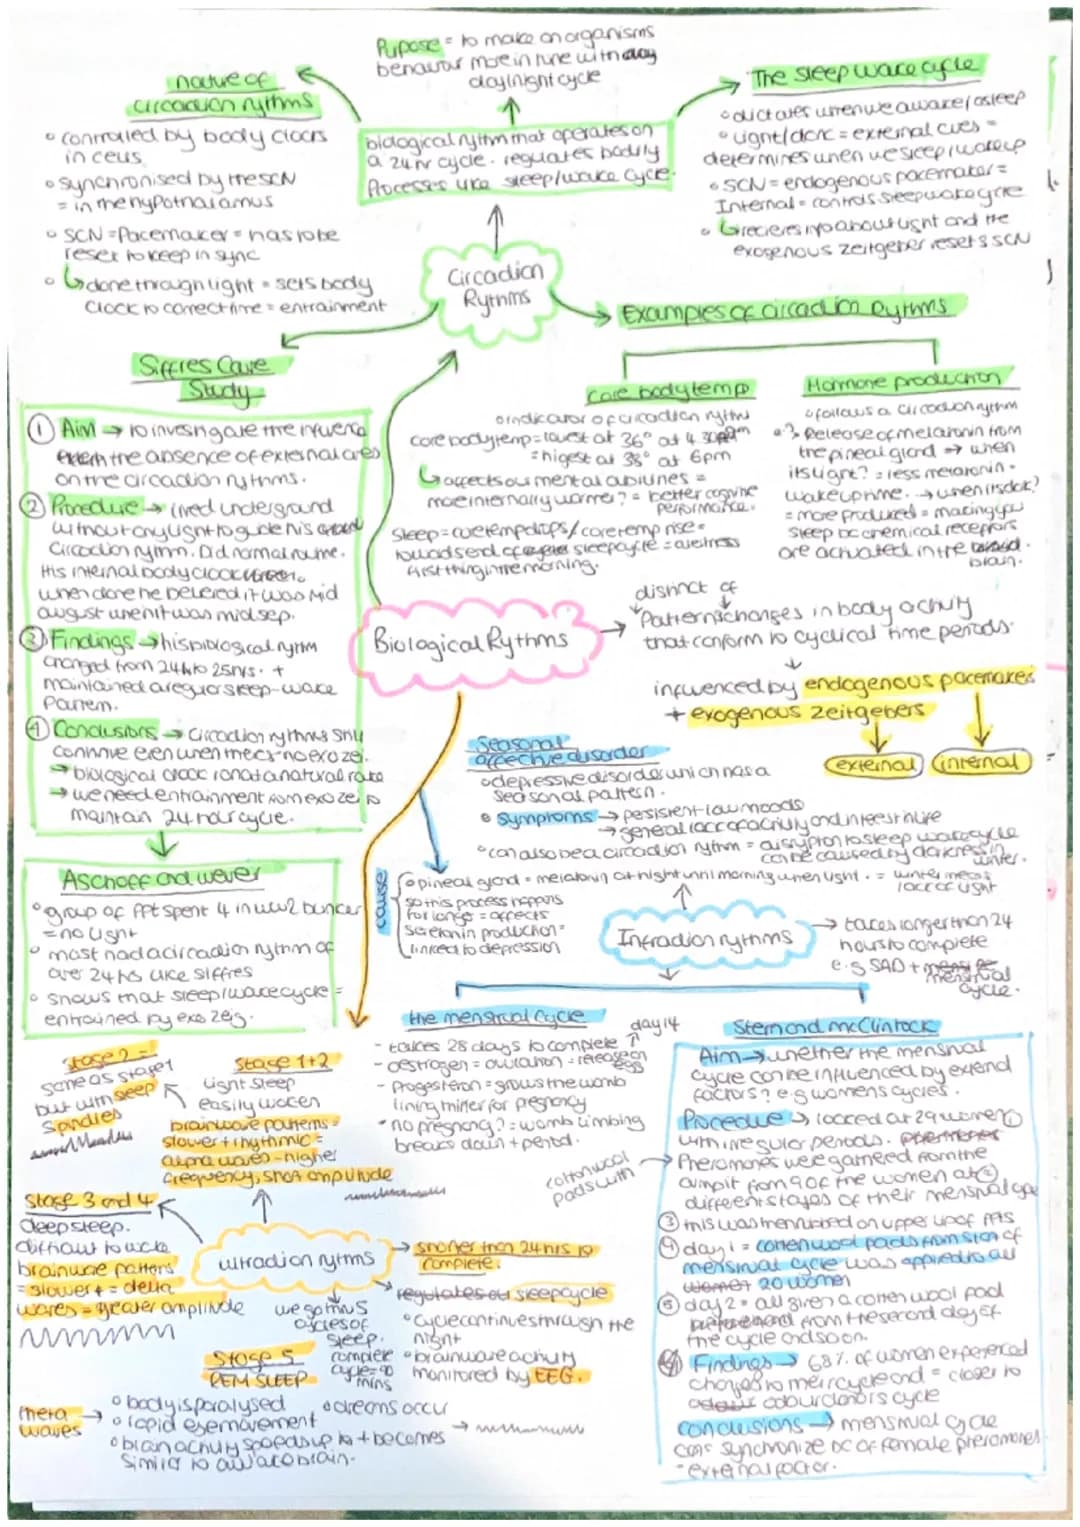 Pupose = to make an organisms
behaviour more in tune with
day/night cycle
nature of
circadian rythms
◦ controlled by body clocks
in cells
◦ synchronised by the SCN
= in the hypothalamus
◦ SCN = Pacemaker = has to be
reset to keep in sync
◦ ↳ done through light = sets body
clock to correct time = entrainment
biological rythm that operates on
a 24 hr cycle. regulates bodily
Processes like sleep/wake cycle.
The sleep wake cycle
◦ dictates when we awake/asleep
◦ light/dark = external cues =
determines when we sleep/wakeup
◦ SCN = endogenous pacemaker =
Internal = controls sleep wake cycle
◦ ↳ recieves info about light and the
exogenous zeitgeber resets SCN
Circadian
Rythms
Examples of circadian Rythms
core body temp
◦ indicator of circadian rythm
core body temp = lowest at 36° at 4:30am
= higest at 38° at 6pm
↳ affects our mental abilities =
more internally warmer? = better cognitive
performance.
Sleep = core temp drops / core temp rise =
towards end of sleep cycle = alertness
first thing in the morning.
Hormone production
◦ follows a circadian rythm
◦ Release of melatonin from
the pineal gland → when
its light? = less melatonin =
wake up time. → when its dark?
= more produced = making you
sleep bc chemical receptors
are activated in the
brain.
Siffres Cave
Study
① Aim → to investigate the influence
the absence of external cues
on the circadian rythms.
② Procedure → lived underground
without any light to guide his
circadian rythm. Did normal routine.
His internal body clock
when done he believed it was mid
august when it was mid sep.
③ Findings → his biological rythm
changed from 24h to 25hrs. +
maintained a regular sleep-wake
pattern.
④ Conclusions → circadian rythms still
continue even when theres no exo zei.
→ biological clock
→ we need entrainment from exo zei to
maintain 24 hour cycle.
Aschoff and wever
◦ group of ppt spent 4 in ww2 bunker
= no light
◦ most had a circadian rythm of
over 24 hrs like siffres
◦ shows that sleep/wake cycle =
entrained by exo zeig.
Biological Rythms
→ distinct
Patterns of changes in body activity
that conform to cyclical time periods.
influenced by endogenous pacemakes
+ exogenous zeitgebers
external
internal
Seasonal
affective disorder
◦ depressive disorder which has a
seasonal pattern.
◦ Symptoms → persistent low moods
→ general lack of activity and interest in life
◦ can also be a circadian rythm = disruption to sleep wake cycle
can be caused by darkness in
winter.
cause
◦ pineal gland = melatonin at night until morning when light. = winter means
lack of light
so this process happens
for longer = affects
seretonin production =
linked to depression
Infradian rythms
→ takes longer than 24
hours to complete
e.g SAD + menstrual
cycle.
the menstrual cycle
- takes 28 days to complete
day 14
- oestrogen = ovulation = release on
egg
- Progesteron = grows the womb
lining thicker for pregnancy
- no pregnancy? = womb lining
breaks down + period.
Stern and McClintock
Aim → whether the menstrual
cycle can be influenced by
factors? e.g womens cycles.
Procedure → looked at 29 women ①
with iregular periods.
Pheromones were gathered from the
armpit from 9 of the women at ②
different stages of their menstrual cycle
cotton wool
pads with
③ this was then rubbed on upper lip of ppts
④ day 1 = cotton wool pads from start of
menstrual cycle was applied to all
20 women
⑤ day 2 = all given a cotton wool pad
from the second day of
the cycle and so on.
Findings → 68% of women experienced
changes to their cycle and = closer to
odour donors cycle
conclusions → menstrual cycle
can synchronize bc of female pheromones
- external factor.
Stage 2 =
same as stage 1
but with sleep
Spindles
Stage 1+2
light sleep
easily woken
brainwave patterns =
slower + rhythmic =
alpha waves - higher
frequency, short amplitude
Stage 3 and 4
deep sleep.
difficult to wake
brainwave patterns
= slower + = delta
waves = greater amplitude
ultradian rythms
→ shorter than 24 hrs to
complete.
regulates our sleep cycle
◦ cycle continues through the
night
◦ brainwave activity
monitored by EEG.
we go thru 5
cycles of
sleep.
complete
cycle = 90
mins
Stage 5
REM SLEEP
theta
waves
◦ body is paralysed
◦ dreams occur
◦ rapid eye movement
◦ brain activity speeds up + becomes
similar to awake brain.